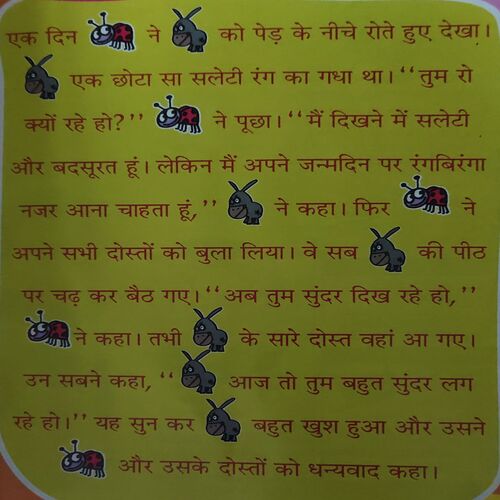 एक दिन ने को पेड़ के नीचे रोते हुए देखा।
एक छोटा सा सलेटी रंग का गधा था। ‘‘तुम रो
क्यों रहे हो?’’ ने पूछा। ‘‘मैं दिखने में सलेटी
और बदसूरत हूं। लेकिन मैं अपने जन्मदिन पर रंगबिरंगा
नजर आना चाहता हूं,’’ ने कहा। फिर ने
अपने सभी दोस्तों को बुला लिया। वे सब की पीठ
पर चढ़ कर बैठ गए। ‘‘अब तुम सुंदर दिख रहे हो,’’
ने कहा। तभी के सारे दोस्त वहां आ गए।
उन सबने कहा, ‘‘ आज तो तुम बहुत सुंदर लग
रहे हो।’’ यह सुन कर बहुत खुश हुआ और उसने
और उसके दोस्तों को धन्यवाद कहा।